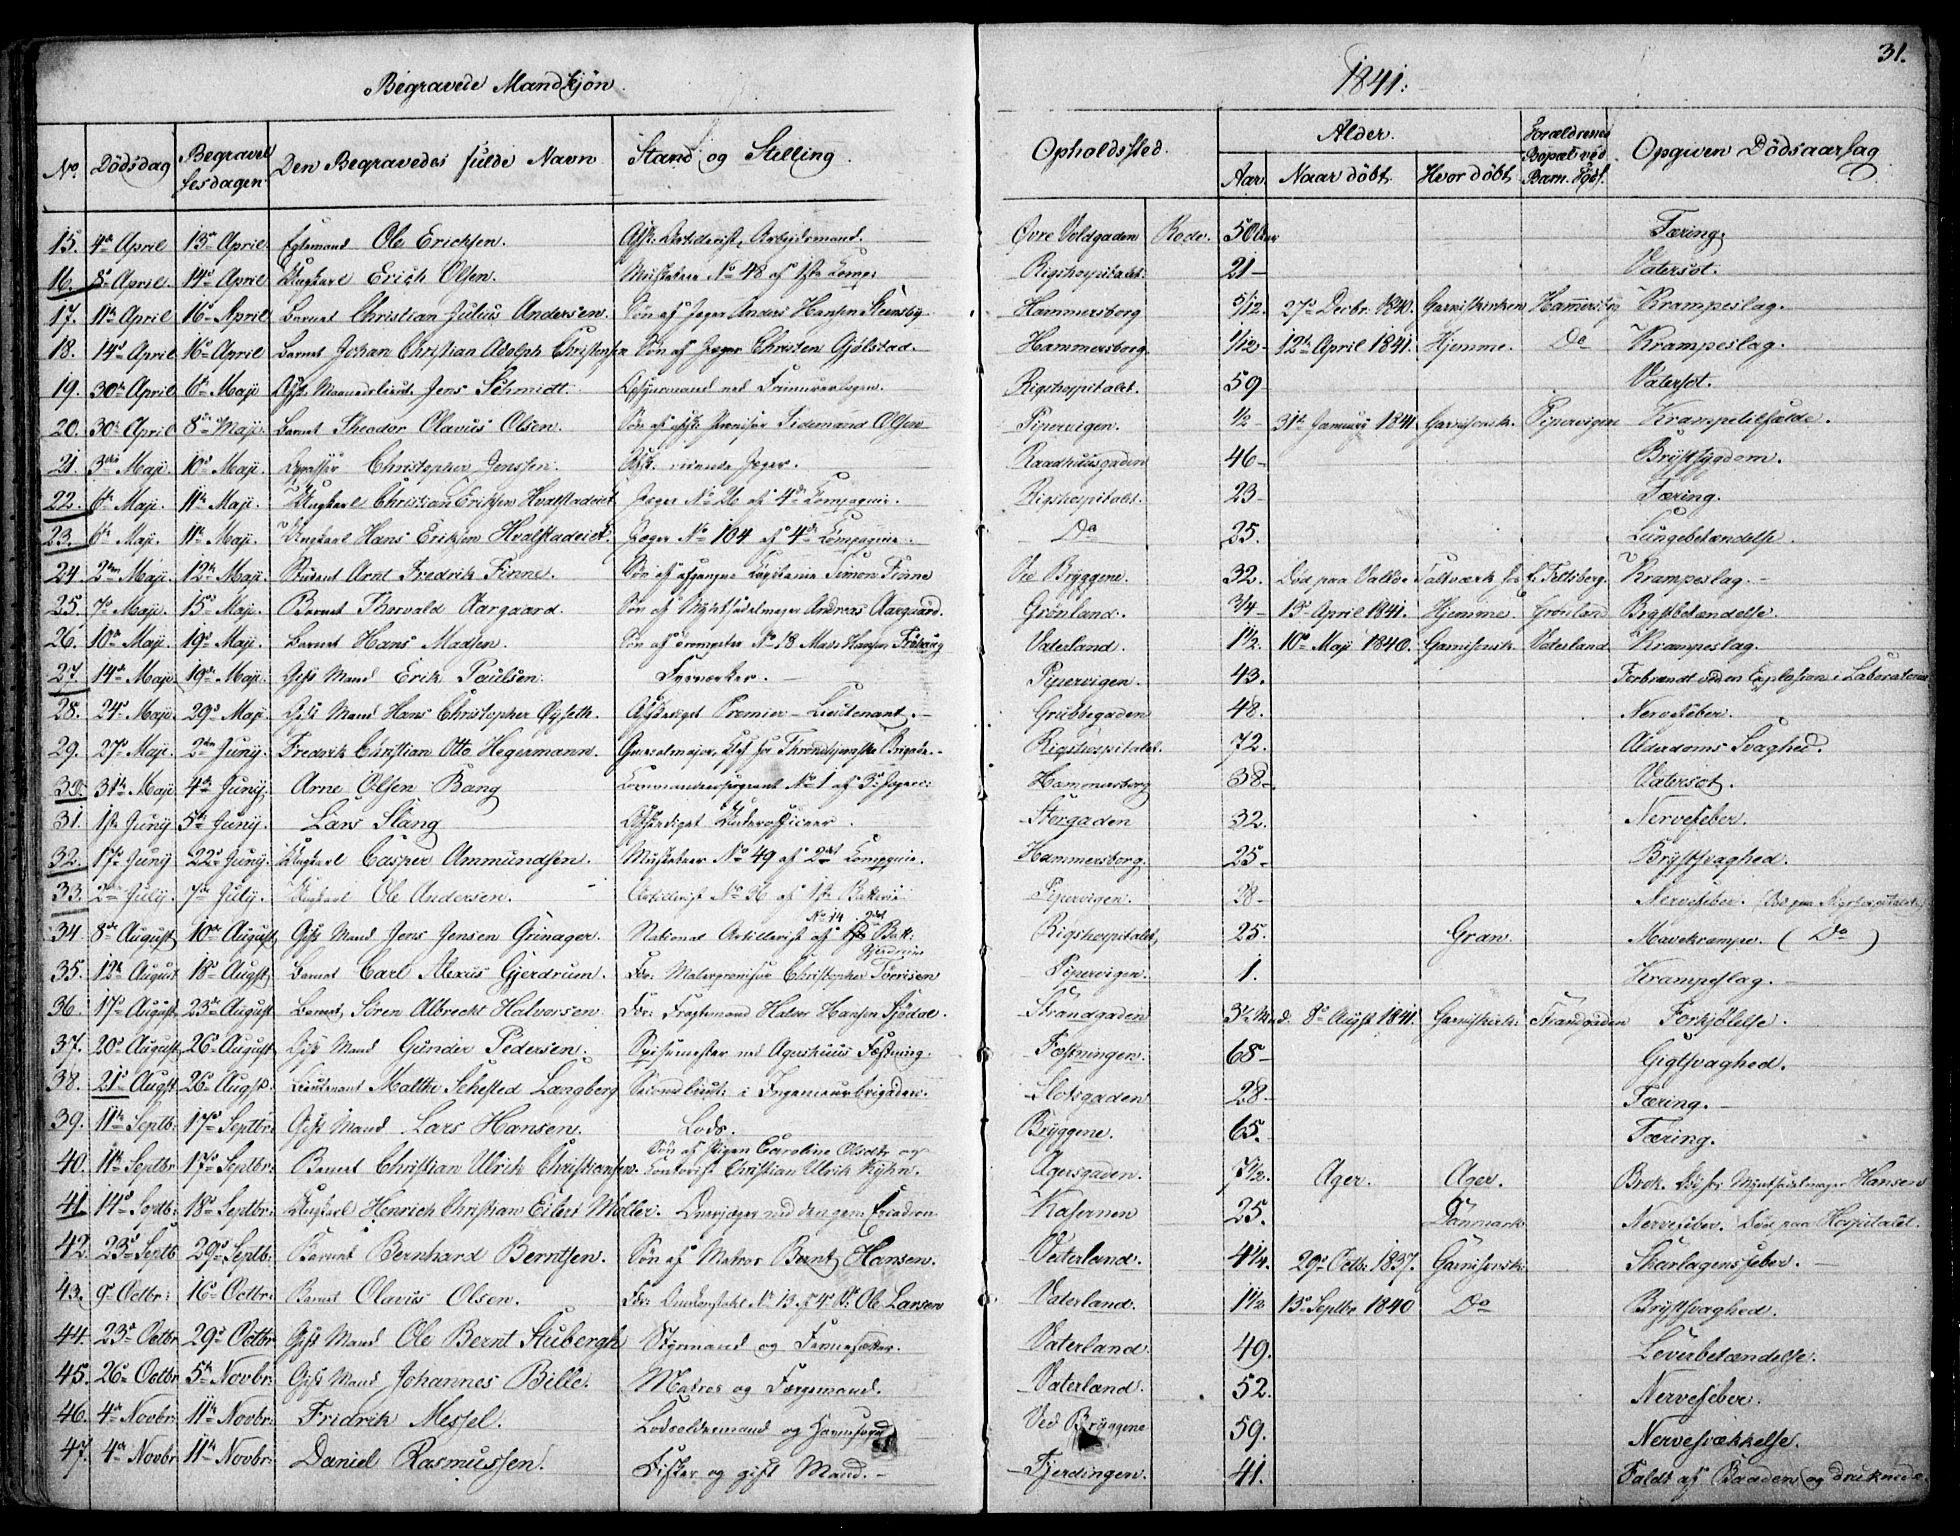 31.
Begravede Mandkjön. 1841.
No. Dödsdag Begravelsesdagen Den Begravedes fulde Navn Stand og Stilling Opholdssted Alder. Aar Naar döbt Hvor döbt Forældrenes Bopæl ved Barn. Föds. Opgiven Dödsaarsag
15. 4de April 13de April Ole Ericksen. Afsk. Artillerist, Arbeidsmand. Övre Voldgaden Rode. 50 Aar Tæring.
16. 8de April. 14de April Ungkarl Erich Olsen. Musketeer No 48 af 1ste Comp: Rigshospitalet. 21 Vatersot.
17. 11te April 16de April Barnet Christian Julius Andersen. Sön af Jæger Anders Hansen Steensby Hammersborg 5/12. 27de Decbr. 1840. Garniskirken Hammersborg Krampeslag.
18. 14de April 16de April Barnet Johan Christian Adolph Christensen Sön af Jæger Christen Gjölstad. Hammersborg. 1/12 12te April 1841. Hjemme. Do Krampeslag.
19. 30te April 6te Maji Afsk. Maanedslieut. Jens Schmidt. Opsynsmand ved Frimurerlogen. Rigshospitalet. 59 Vatersot.
20. 30te April 8de Maji. Barnet Theodor Olavus Olsen. Sön af afsk. Sidemand Olsen Pipervigen. 1/2 31te Januar 1841 Garnisonsk. Pipervigen Krampetilfælde.
21. 3die Maji. 10de Maji. Christopher Jenssen. Afsk. ridende Jæger. Raadhuusgaden 46 Brÿstsÿgdom.
22. 6te Maji. 11te Maji. Ungkarl Christian Eriksen Hvalstadeiet Jæger No 26 af 4de Compagnie. Rigshospitalet. 23 Tæring.
23. 6te Maji. 11te Maji. Ungkarl Hans Eriksen Hvalstadeiet. Jæger No 104 af 4de Compagnie. Do 25. Lungebetændelse.
24. 2den Maji. 12te Maji. Student Arnt Fredrik Finne. Sön af afgangne Capitain Simon Finne Ved Brÿggene. 32. Död paa Vallöe Saltværk Krampeslag.
25. 7de Maji. 15de Maji. Barnet Thorvald Aargaard. Sön af Mÿntsadelmager Andreas Aargaard. Grönland. 3/4 13de April 1841. Hjemme. Grönland Brÿstbetændelse.
26. 10de Maji. 19de Maji. Barnet Hans Madsen. Sön af Trompeter No 18 Mads Hansen Fröhaug Vaterland. 1 1/2. 10de Maji 1840. Garnisonsk. Vaterland Krampeslag.
27. 14de Maji 19de Maji. Gift Mand Erik Paulsen. Fyrverker. Pipervigen. 43. Forbrændt ved en Explosion i Laboratoriet
28. 24de Maji. 29de Maji Gift Mand Hans Christopher Öÿseth. Afskediget Premier-Lieutenant. Grubbegaden 48. Nervefeber.
29. 27de Maji. 2den Junÿ. Fredrik Christian Otto Hegermann. Generalmajor, Chef for Throndhjemske Brigade. Rigshospitalet. 72. Alderdoms Svaghed.
30. 31te Maji 4de Junÿ. Arne Olsen Bang Commandeersergeant No 1 af 3de Jægerc: Hammersborg 38. Vatersot.
31. 1ste Junÿ 5te Junÿ. Lars Slang Afskediget Underofficeer. Storgaden 32. Nervefeber.
32. 17de Junÿ 22de Junÿ. Ungkarl Casper Ammundsen. Musketeer No 49 af 2det Compagnie. Hammersborg. 25. Brÿstsvaghed.
33. 2den Julÿ. 7de Julÿ. Ungkarl Ole Andersen. Artillerist No 36 af 1ste Batterie Pipervigen. 28 Nervefeber. (Död paa Rigshospitalet)
34. 8de August 10de August Gift Mand Jens Jensen Grinager. National Artillerist No 14 af 2det Batt. Rigshospitalet 25. Gran. Mavekrampe. (Do)
35. 12te August 18de Augst Barnet Carl Alexius Gjerdrum. For: Christopher Torrisen Gjerdrum Pipervigen. 1. Krampeslag.
36. 17de August 23de August Barnet, Sören Albrecht Halvorsen For: Fragtmand Halvor Hansen Sjödal. Strandgaden 3 1/2 Mnd. 8de Augst 1841. Garnisk: Strandgaden Forkjölelse.
37. 20de August 26de August Gift Mand Gunder Pedersen. Spisemester ved Agershuus Fæstning. Fæstningen. 68 Gigtsvaghed.
38. 21de Augst 26de Augst. Lieutenant Malthe Sehested Langberg Secondlieut: i Ingenieurbrigaden. Slotsgaden 28 Tæring.
39. 11te Septb: 17de Septbr: Gift Mand Lars Hansen. Lods. Brÿggene. 65. Tæring.
40. 11te Septbr 17de Septbr: Barnet Christian Ulrik Christiansen. Sön af Pigen Caroline Olsdtr og Contorist Christian Ulrik Kÿhn. Agersgaden. 7 1/2. Ager. Ager. Brok. Hansen
41. 14de Septb: 18de Septbr: Ungkarl Henrich Christian Eilert Möller. Overjæger ved den gem: Escadron Kasernen 25. Danmark Nervefeber. Död paa Hospitalet.
42. 23de Septb 29de Septb: Barnet Bernhard Berntsen. Sön af Matros Bernt Hansen. Vaterland. 4 1/4. 29de Octb. 1837. Garnisonsk. Skarlagensfeber.
43. 9de Octbr: 16de Octbr: Barnet Olavus Olsen. For: No 13 Ole Larsen Vaterland. 1 1/2 13de Septbr 1840 Do Brÿstsvaghed.
44. 23de Octbr 29de Octbr Gift Mand Ole Bernt Stubergh Stÿrmand og Vaterland. 49. Leverbetændelse.
45. 26de Octbr 5te Novbr: Gift Mand Johannes Bille. Matros og Færgemand. Vaterland. 52. Nervefeber.
46. 4de Novbr: 11te Novbr: Fridrik Messel. Lodsoldermand og Havnefoged Ved Brÿggene 59. Nervesvækkelse.
47. 4de Novbr 11te Novbr: Daniel Rasmussen. Fisker og gift Mand. Fjerdingen. 41. Faldt af Baaden og druknede.